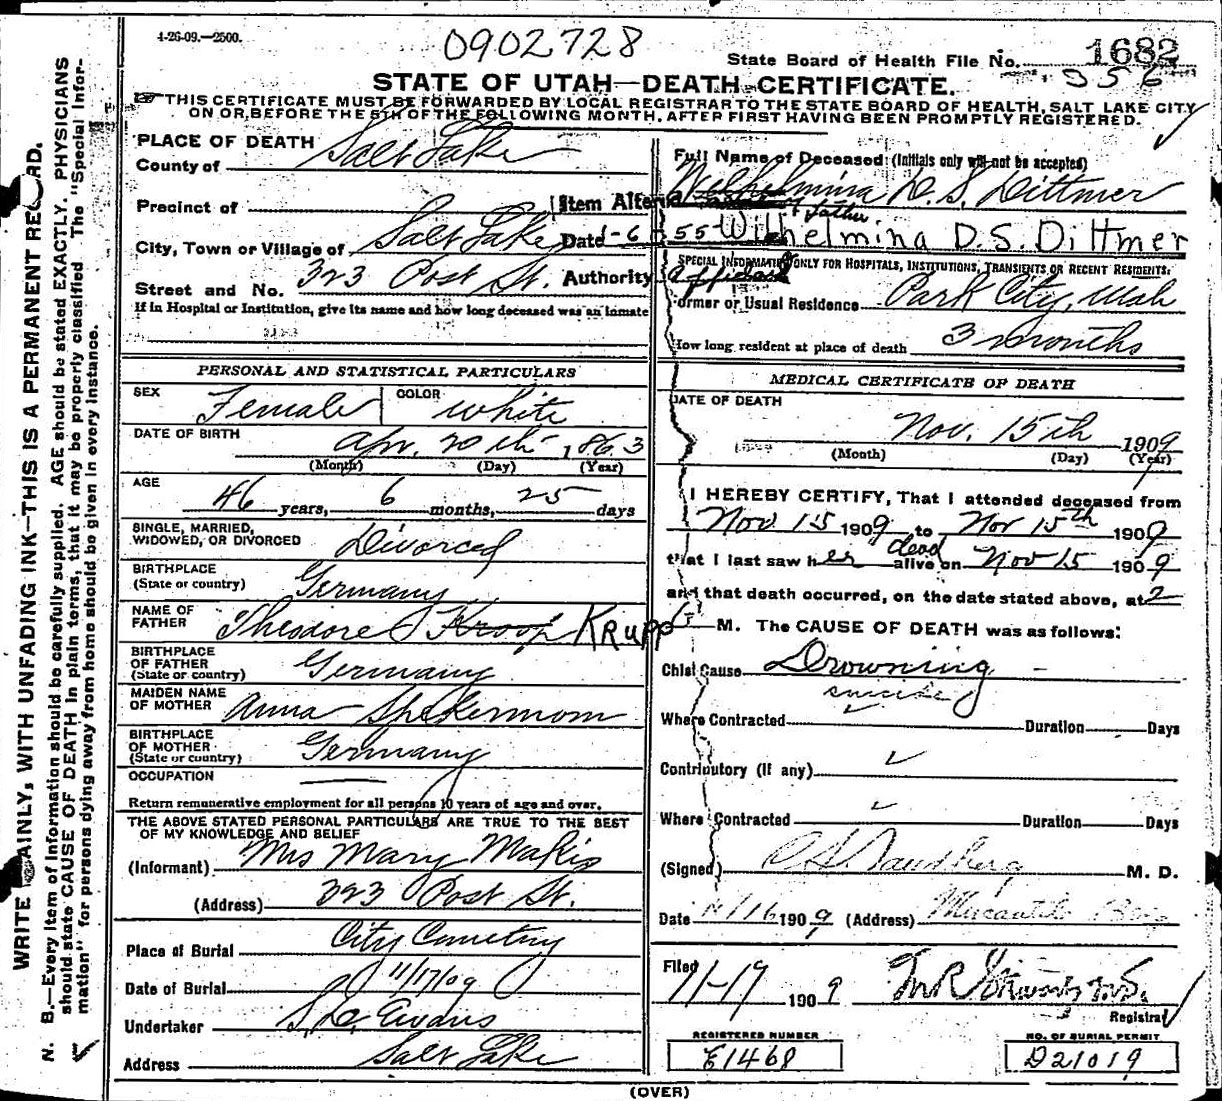 4-26-09.—2500.
0902728
State Board of Health File No. 1682
356
STATE OF UTAH—DEATH CERTIFICATE.
THIS CERTIFICATE MUST BE FORWARDED BY LOCAL REGISTRAR TO THE STATE BOARD OF HEALTH, SALT LAKE CITY
ON OR BEFORE THE 5TH OF THE FOLLOWING MONTH, AFTER FIRST HAVING BEEN PROMPTLY REGISTERED.
WRITE PLAINLY, WITH UNFADING INK—THIS IS A PERMANENT RECORD.
N. B.—Every item of Information should be carefully supplied. AGE should be stated EXACTLY. PHYSICIANS
should state CAUSE OF DEATH in plain terms, that it may be properly classified. The "Special Infor-
mation" for persons dying away from home should be given in every instance.
PLACE OF DEATH
County of Salt Lake
Precinct of
City, Town or Village of Salt Lake
Street and No. 323 Post St.
If in Hospital or Institution, give its name and how long deceased was an inmate
Item Altered
& father.
Date 1-6-55
Authority affidavit
Full Name of Deceased: (Initials only will not be accepted)
Wilhelmina D. S. Dittmer
Wilhelmina D. S. Dittmer
SPECIAL INFORMATION ONLY FOR HOSPITALS, INSTITUTIONS, TRANSIENTS OR RECENT RESIDENTS.
Former or Usual Residence Park City, Utah
How long resident at place of death 3 months
PERSONAL AND STATISTICAL PARTICULARS
SEX Female COLOR White
DATE OF BIRTH Apr. 20th 1863
(Month) (Day) (Year)
AGE 46 years, 6 months, 25 days
SINGLE, MARRIED, WIDOWED, OR DIVORCED Divorced
BIRTHPLACE (State or country) Germany
NAME OF FATHER Theodore Kroop KRUPP
BIRTHPLACE OF FATHER (State or country) Germany
MAIDEN NAME OF MOTHER Anna Spekermom
BIRTHPLACE OF MOTHER (State or country) Germany
OCCUPATION
Return remunerative employment for all persons 10 years of age and over.
THE ABOVE STATED PERSONAL PARTICULARS ARE TRUE TO THE BEST
OF MY KNOWLEDGE AND BELIEF
(Informant) Mrs Mary Makis
(Address) 323 Post St.
Place of Burial City Cemetry
Date of Burial 11/17/09
Undertaker S. D. Evans
Address Salt Lake
MEDICAL CERTIFICATE OF DEATH
DATE OF DEATH
Nov. 15th 1909
(Month) (Day) (Year)
I HEREBY CERTIFY, That I attended deceased from
Nov 15 1909 to Nov 15th 1909
dead
that I last saw her alive on Nov 15 1909
and that death occurred, on the date stated above, at 2
M. The CAUSE OF DEATH was as follows:
Chief Cause Drowning
suicide
Where Contracted Duration Days
Contributory (If any)
Where Contracted Duration Days
(Signed) M. D.
Date 11/16 1909 (Address) Mercantile
Filed 11-17 1909
Registrar
REGISTERED NUMBER
E1468
NO. OF BURIAL PERMIT
D21019
(OVER)